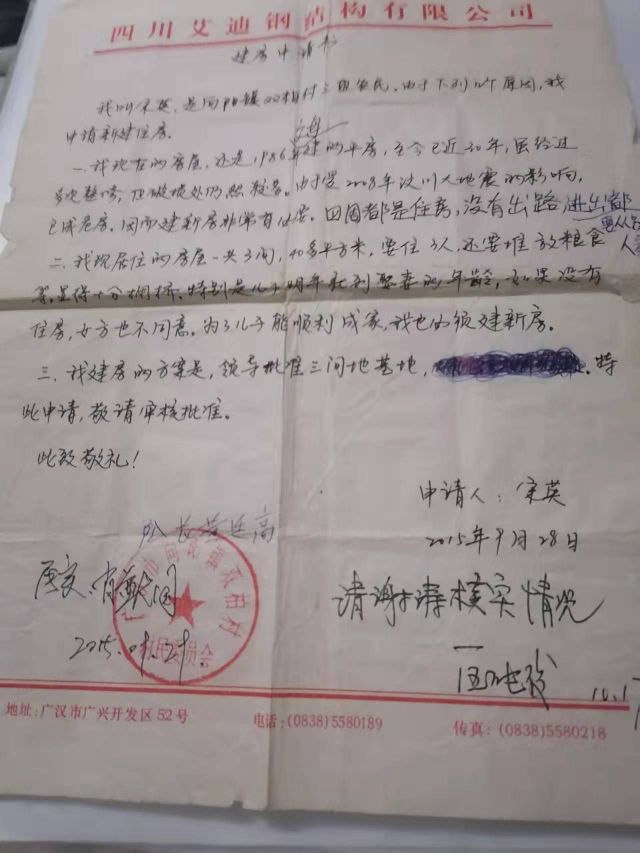 四川艾迪钢结构有限公司
建房申请书
我叫宋英，是向阳镇双柏村三组农民。由于下列几个原因，我
申请新建住房。
一、我现在的房屋，还是1986年建的平房，至今已近30年，虽经过
多次整修，但破烂处仍然较多。由于受2008年汶川大地震的影响，
已成危房。因而建新房非常有必要。四周都是住房，没有出路 进出都
要从
二、我现居住的房屋一共3间，40多平方米，要住3人，还要堆放粮食
等，显得十分拥挤。特别是儿子明年就到娶妻的年龄，如果没有
住房，女方也不同意。为了儿子能顺利成家，我也必须建新房。
三、我建房的方案是，领导批准三间地基地，特
此申请，敬请审核批准。
此致敬礼！
申请人：宋英
2015年9月28日
队长
双柏村
村民委员会
2015.09.29
请 核实情况
10.1
地址：广汉市广兴开发区52号
电话：(0838)5580189
传真：(0838)5580218